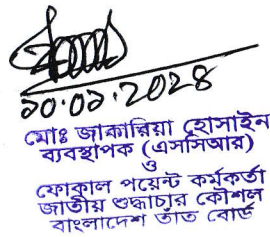 ১০.০১.2024
মোঃ জাকারিয়া হোসাইন
ব্যবস্থাপক (এসসিআর)
ও
ফোকাল পয়েন্ট কর্মকর্তা
জাতীয় শুদ্ধাচার কৌশল
বাংলাদেশ তাঁত বোর্ড